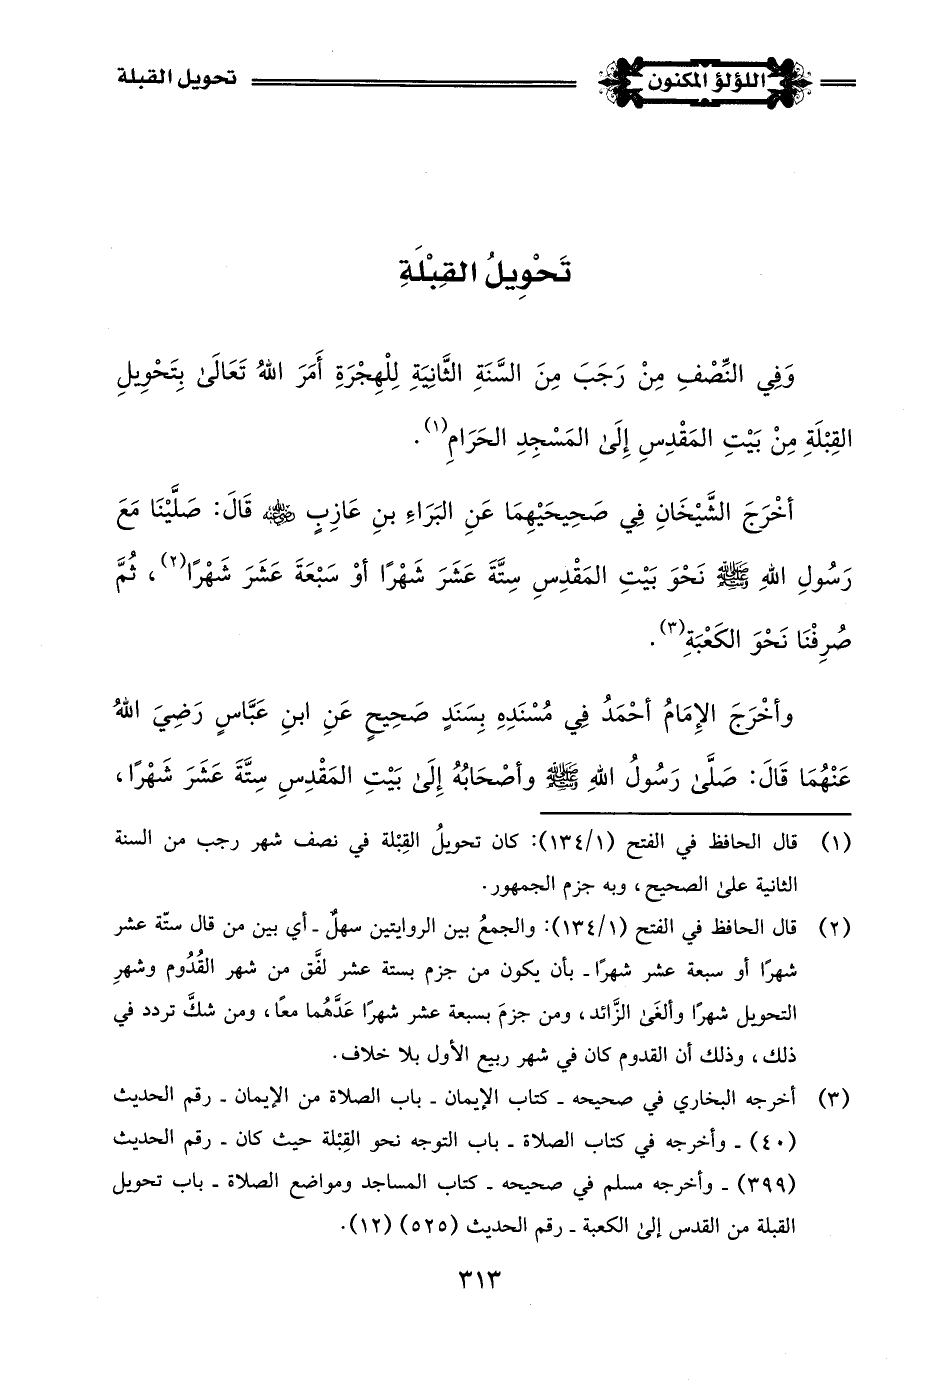 اللؤلؤ المكنون تحويل القبلة
تَحْوِيلُ القِبْلَةِ
وَفِي النِّصْفِ مِنْ رَجَبَ مِنَ السَّنَةِ الثَّانِيَةِ لِلْهِجْرَةِ أَمَرَ اللهُ تَعَالَىٰ بِتَحْوِيلِ
القِبْلَةِ مِنْ بَيْتِ المَقْدِسِ إِلَىٰ المَسْجِدِ الحَرَامِ(١).
أخْرَجَ الشَّيْخَانِ فِي صَحِيحَيْهِمَا عَنِ البَرَاءِ بنِ عَازِبٍ رضي الله عنه قَالَ: صَلَّيْنَا مَعَ
رَسُولِ اللهِ ﷺ نَحْوَ بَيْتِ المَقْدِسِ سِتَّةَ عَشَرَ شَهْرًا أوْ سَبْعَةَ عَشَرَ شَهْرًا(٢)، ثُمَّ
صُرِفْنَا نَحْوَ الكَعْبَةِ(٣).
وأخْرَجَ الإِمَامُ أحْمَدُ فِي مُسْنَدِهِ بِسَنَدٍ صَحِيحٍ عَنِ ابنِ عَبَّاسٍ رَضِيَ اللهُ
عَنْهُمَا قَالَ: صَلَّىٰ رَسُولُ اللهِ ﷺ وأصْحَابُهُ إِلَىٰ بَيْتِ المَقْدِسِ سِتَّةَ عَشَرَ شَهْرًا،
(١) قال الحافظ في الفتح (١/١٣٤): كان تحويلُ القِبْلة في نصف شهر رجب من السنة
الثانية علىٰ الصحيح، وبه جزم الجمهور.
(٢) قال الحافظ في الفتح (١/١٣٤): والجمعُ بين الروايتين سهلٌ ـ أي بين من قال ستّة عشر
شهرًا أو سبعة عشر شهرًا ـ بأن يكون من جزم بستة عشر لفَّق من شهر القُدُوم وشهرِ
التحويل شهرًا وألغَىٰ الزَّائد، ومن جزمَ بسبعة عشر شهرًا عَدَّهُما معًا، ومن شكَّ تردد في
ذلك، وذلك أن القدوم كان في شهر ربيع الأول بلا خلاف.
(٣) أخرجه البخاري في صحيحه ـ كتاب الإيمان ـ باب الصلاة من الإيمان ـ رقم الحديث
(٤٠) ـ وأخرجه في كتاب الصلاة ـ باب التوجه نحو القِبْلة حيث كان ـ رقم الحديث
(٣٩٩) ـ وأخرجه مسلم في صحيحه ـ كتاب المساجد ومواضع الصلاة ـ باب تحويل
القبلة من القدس إلىٰ الكعبة ـ رقم الحديث (٥٢٥) (١٢).
٣١٣